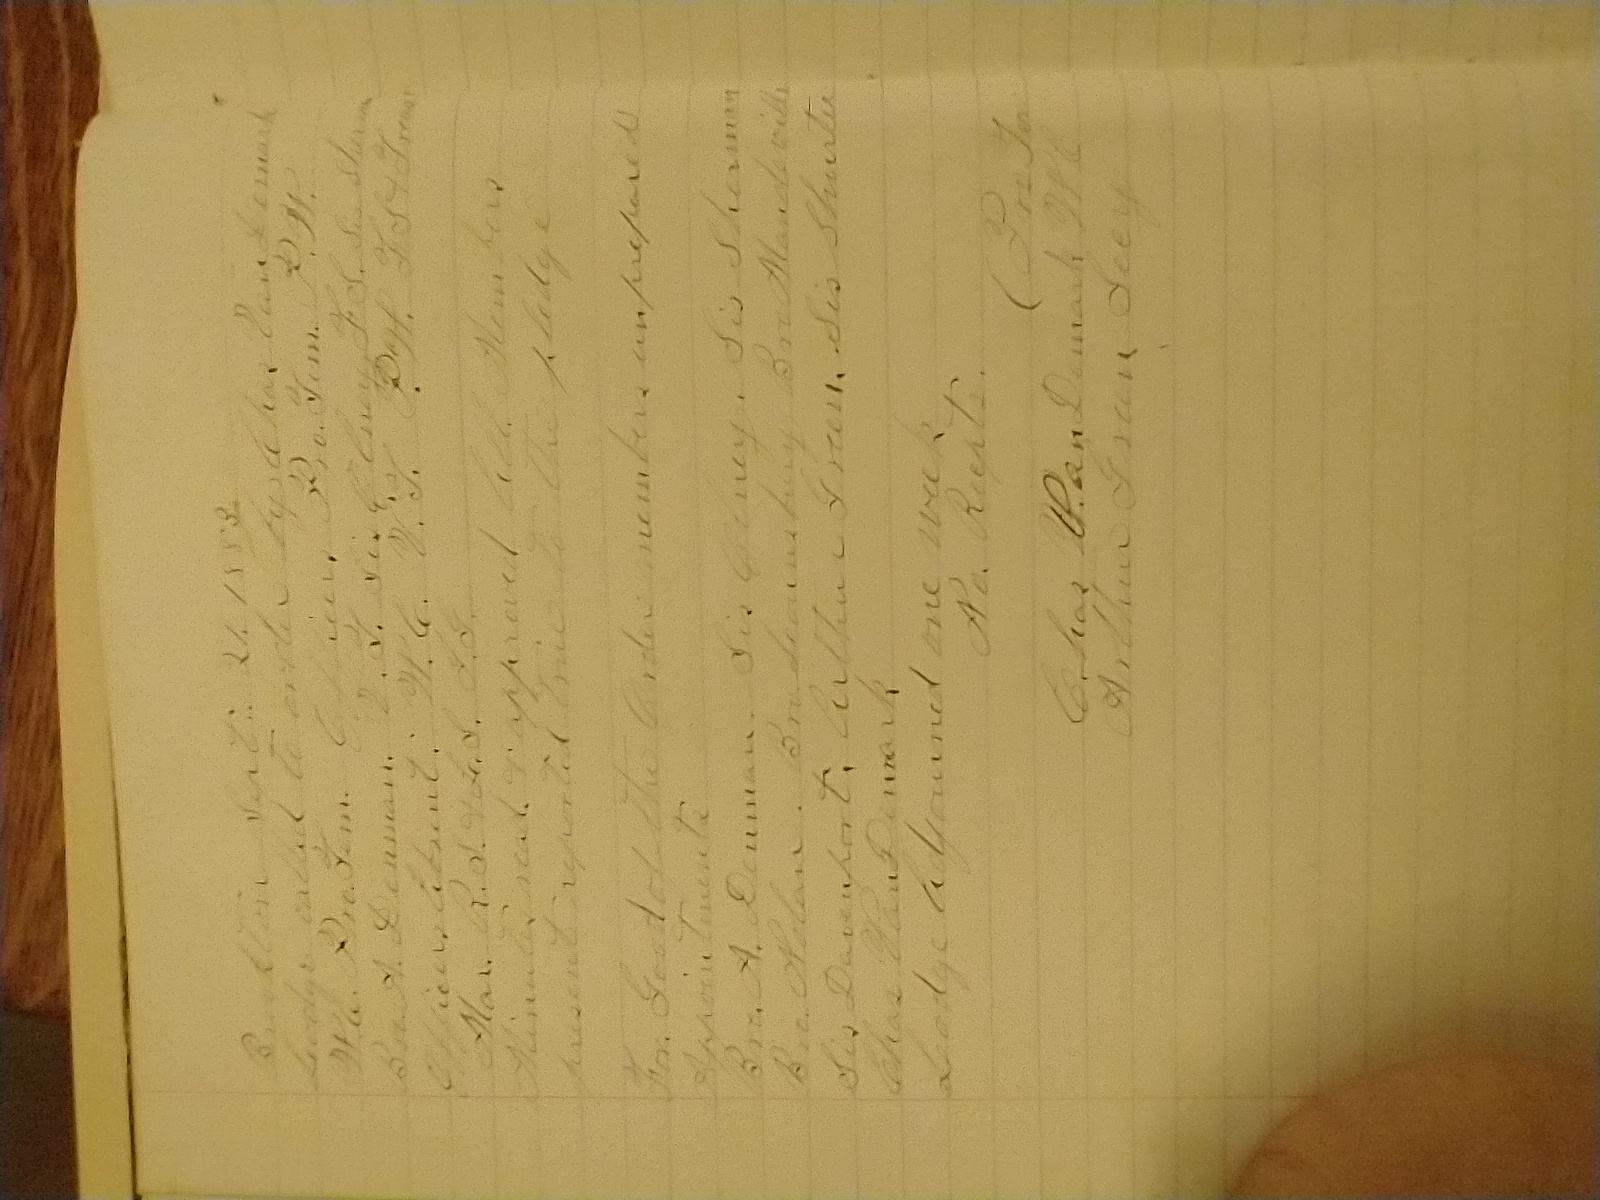 Brookton Sept. 21. 1883
Lodge called to order by Chas Van Demark
W.C. Pro. Tem. Officers Pro. Tem. P. W.
Bro. A. Denman. V. T. Sis Olney, F.S. Sis Sherman
Officers Absent: W. C. V. T. P. W. F S & Treas
Mar. R. S. & L. S. I. G.
Minutes read & approved All Members
present reported true to the pledge
For Good of the Order members unprepared
Appointments
Bro. A. Denman. Sis Olney. Sis Sherman
Bro. Nolan. Bro. Lounsbury Bro Mandeville
Sis Davenport, Arthur Green, Sis Shurter
Chas Van Demark
Lodge Adjourned one week
No. Recpts.
( Pro Tem
Chas Van Demark W C
Arthur Green Secy